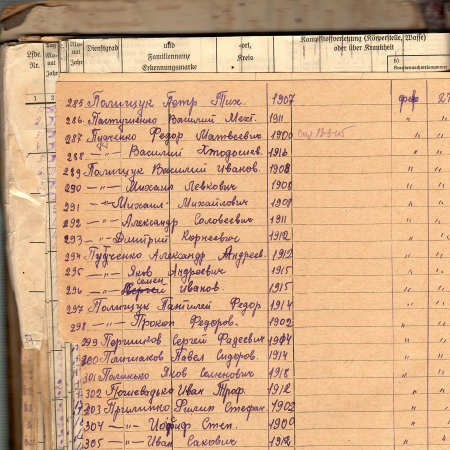 Kampfstoffverletzung (Körperstelle, Waffe)
oder über Krankheit
Lfde. Nr.
Tag Monat Jahr
Monat Jahr
Dienstgrad
und
Familienname
Erkennungsmarke
-ort,
Kreis
b)
Krankenbuchnummer
1 2
285 Полищук Петр Тих. 1907 фев 27
286. Пастушенко Василий 1911 " "
287 Федор Матвеевич 1900 " "
288 —"— Василий 1916 " "
289 Полищук Василий Иванов. 1908 " "
290 —"— Михаил Левкович 1908 " "
291 —"— Михаил Михайлович 1901 " "
292 —"— Александр Соловеевич 1911 " "
293 —"— Дмитрий Корнеевич 1912 " "
294 Александр Андреев. 1912 " "
295 —"— Яков Андреевич 1915 " "
296 —"— Семен Иванов 1915 " "
297 Полищук Пантилей Федор 1914 " "
298 —"— Прокоп Федоров. 1902 " "
299 Сергей Фадеевич 1904 " "
300 Павел Сидоров. 1914 " "
301 Яков Семенович 1918 " "
302 Иван Троф. 1912 " "
303 Филип Стефан. 1902 " "
304 —"— Иосиф Степ. 1900 " "
305 —"— Иван Сакович 1912 " "